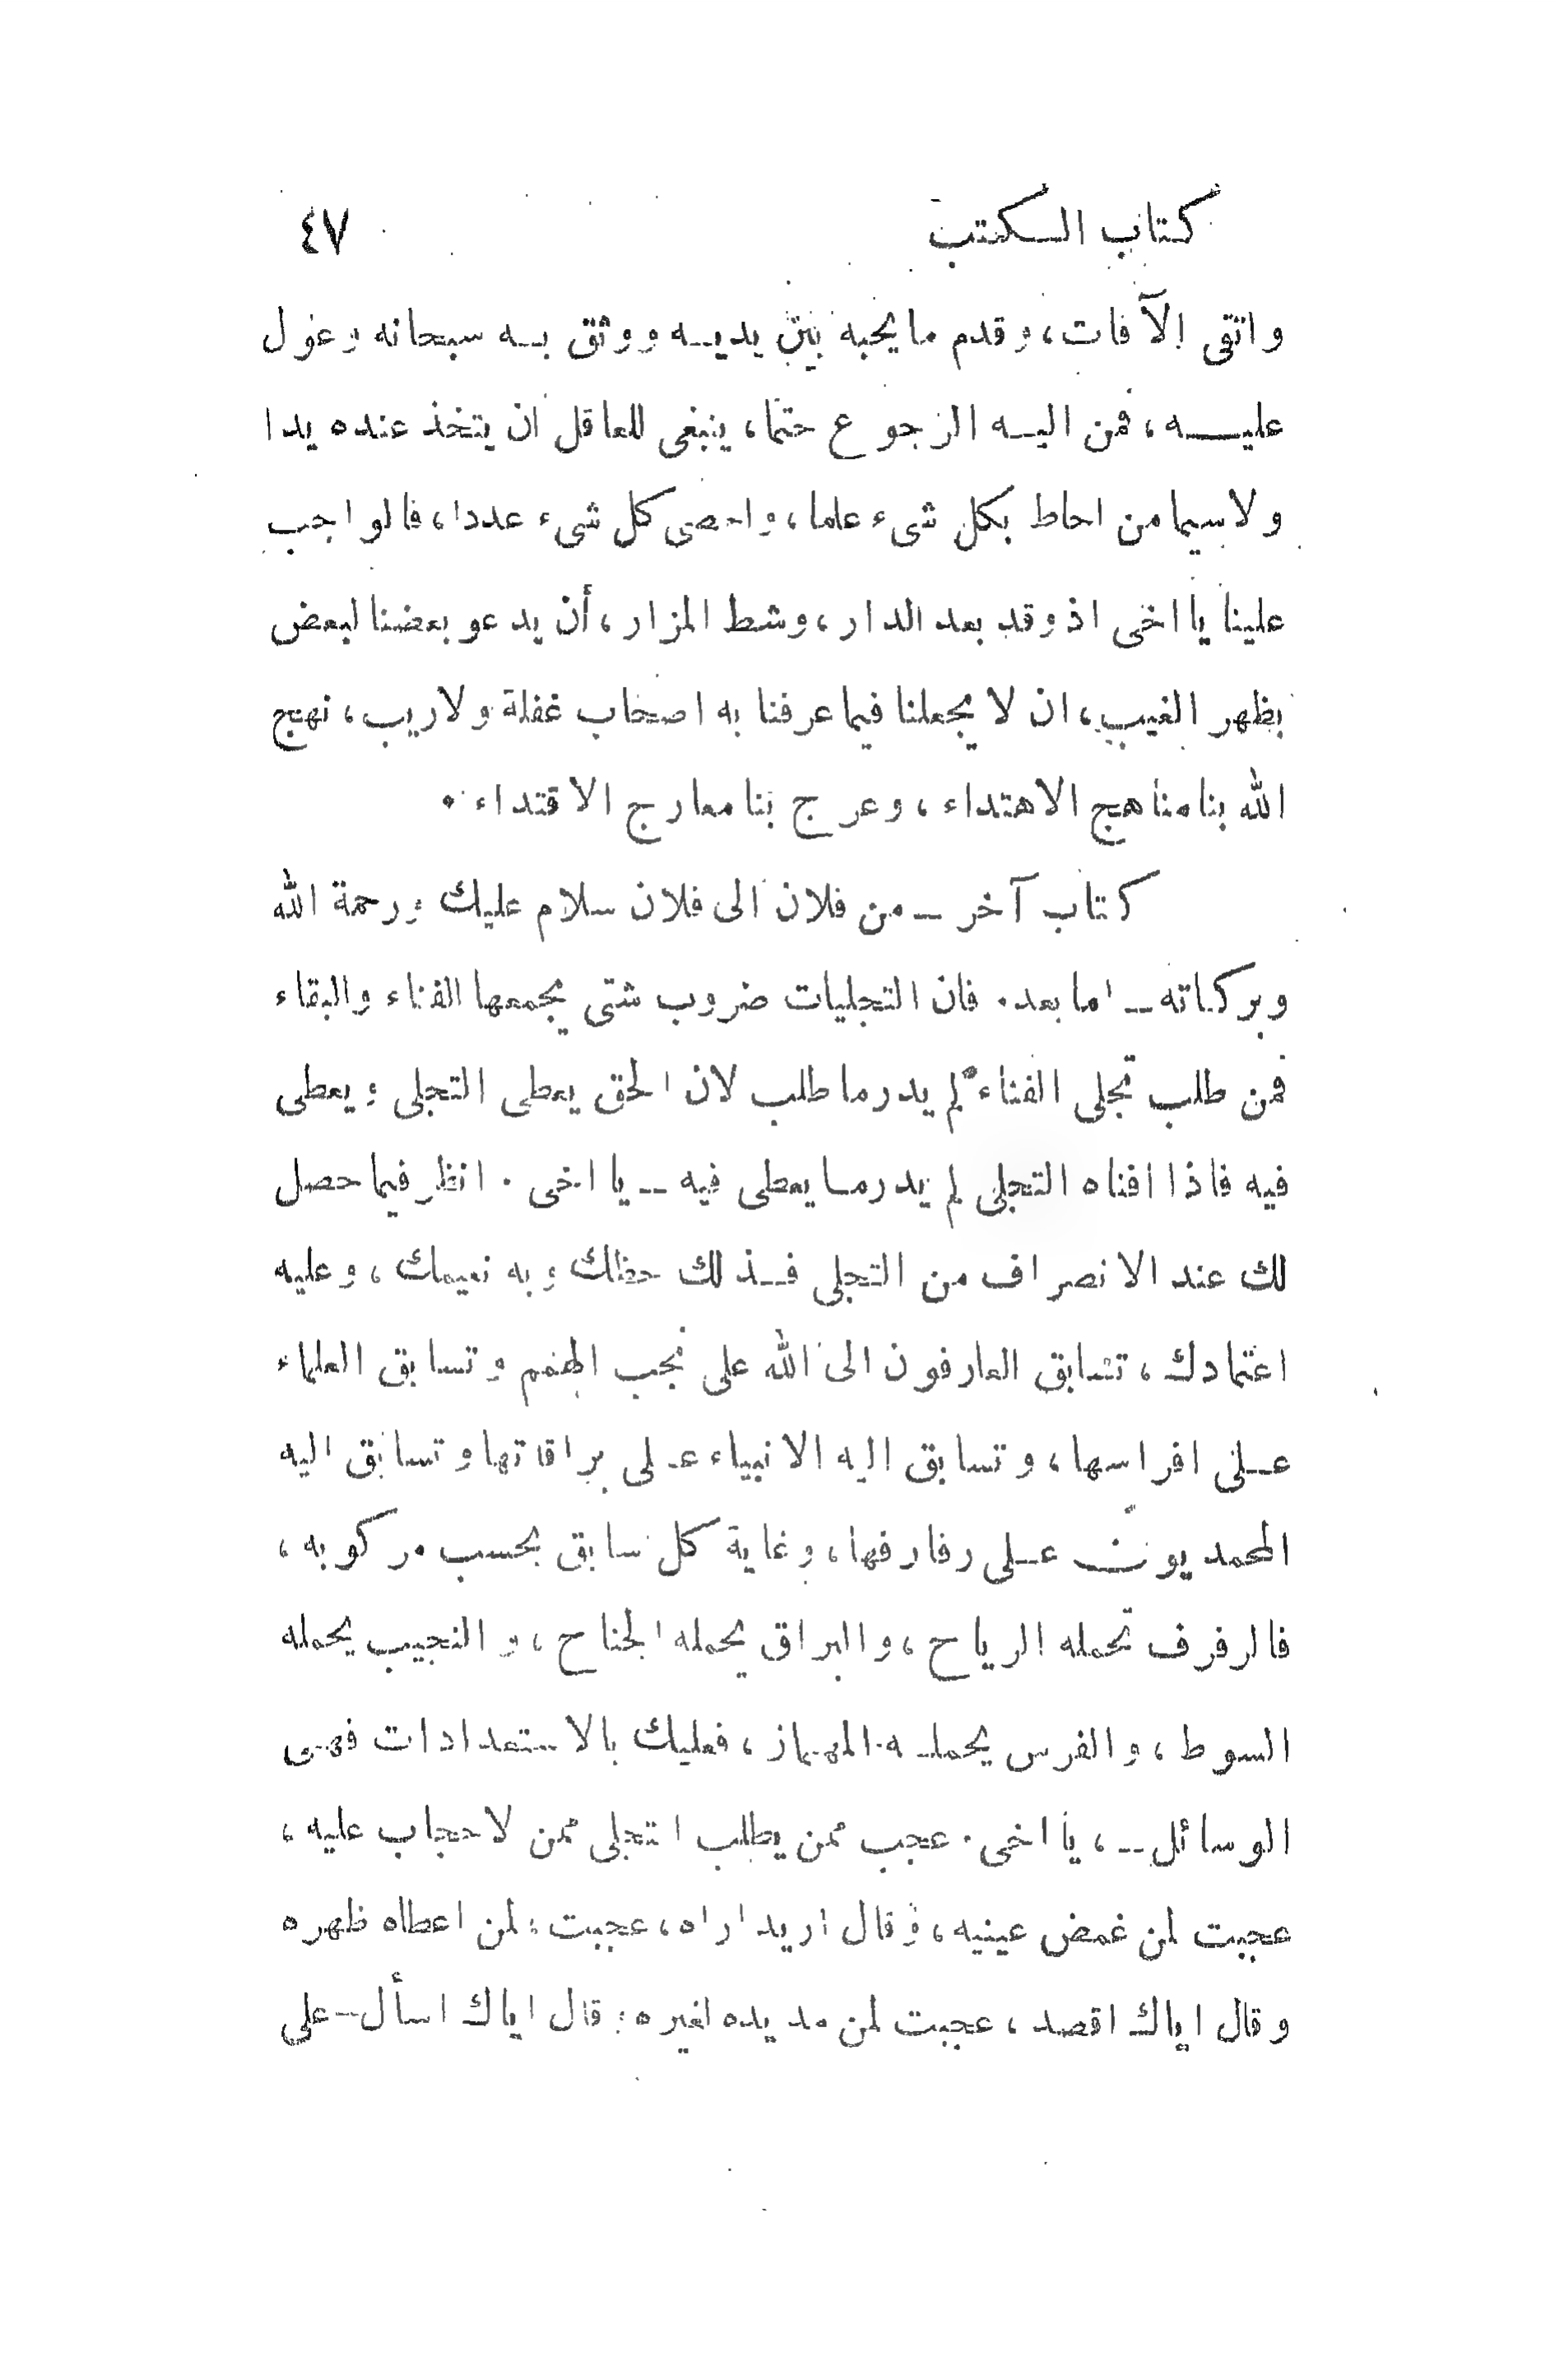 كتاب الكتب ٤٧
واتقى الآفات، وقدم ما يحبه بين يديه ووثق به سبحانه وعول
عليه، فمن اليه الرجوع حتما، ينبغى للعاقل ان يتخذ عنده يدا
ولاسيما من احاط بكل شىء علما، واحصى كل شىء عددا، فالواجب
علينا يا اخى اذ وقد بعد الدار، وشط المزار، أن يدعو بعضنا لبعض
بظهر الغيب، ان لا يجعلنا فيما عرفنا به اصحاب غفلة ولاريب، نهج
الله بنا مناهج الاهتداء، وعرج بنا معارج الاقتداء.
كتاب آخر ــ من فلان الى فلان سلام عليك ورحمة الله
وبركاته ــ اما بعد. فان التجليات ضروب شتى يجمعها الفناء والبقاء
فمن طلب تجلى الفناء لم يدر ما طلب لان الحق يعطى التجلى ويعطى
فيه فاذا افناه التجلى لم يدر ما يعطى فيه ــ يا اخى. انظر فيما حصل
لك عند الانصراف من التجلى فذلك حظك وبه نعيمك، وعليه
اعتمادك، تسابق العارفون الى الله على نجب الهمم وتسابق العلماء
على افراسها، وتسابق اليه الانبياء على براقاتها وتسابق اليه
المحمديون على رفارفها، وغاية كل سابق بحسب مركوبه،
فالرفرف تحمله الرياح، والبراق يحمله الجناح، والنجيب يحمله
السوط، والفرس يحمله المهماز، فعليك بالاستعدادات فهى
الوسائل ــ، يا اخى. عجب ممن يطلب التجلى ممن لاحجاب عليه،
عجبت لمن غمض عينيه، وقال اريد اراه، عجبت لمن اعطاه ظهره
وقال اياك اقصد، عجبت لمن مد يده لغيره: قال اياك اسأل ــ على